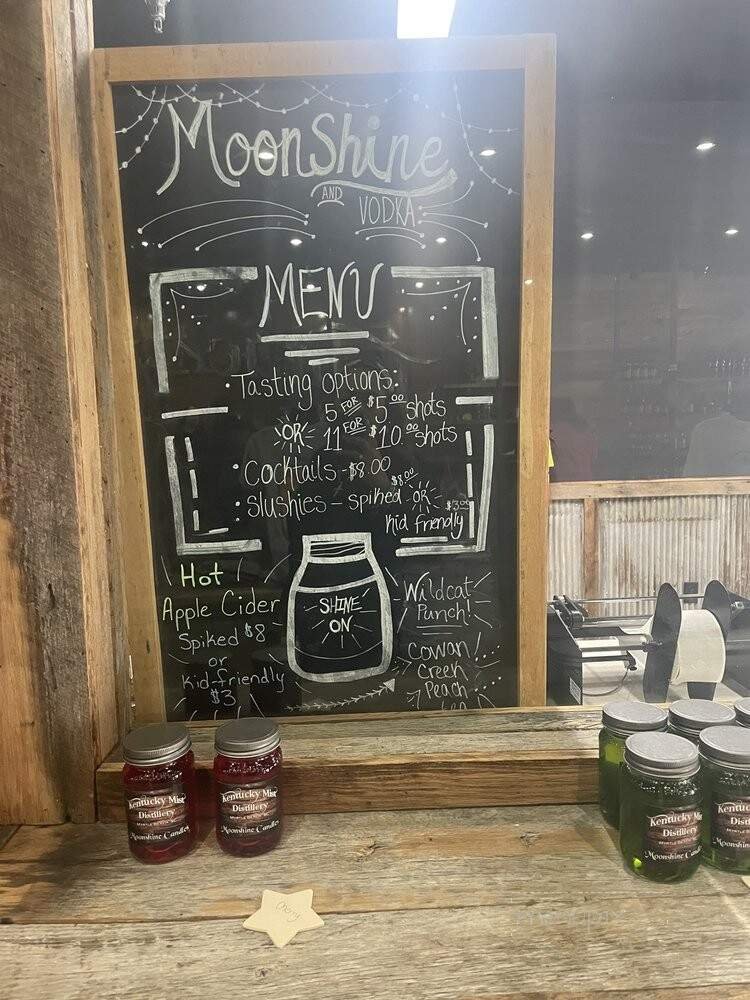 MoonShine
AND
VODKA
MENU
• Tasting options:
5 FOR $5.00 shots
OR 11 FOR $10.00 shots
• Cocktails - $8.00
• Slushies - spiked $8.00 OR
Kid friendly $3.00
Hot
Apple Cider
Spiked $8
or
Kid-friendly
$3
SHINE
ON
Wildcat
Punch!
Cowan
Creek
Peach
Kentucky Mist
Distillery
Moonshine Candles
Kentucky Mist
Distillery
Moonshine Candles
Kentucky Mi
Distillery
Moonshine Cand
Kentu
Dist
Moonshin
Cherry